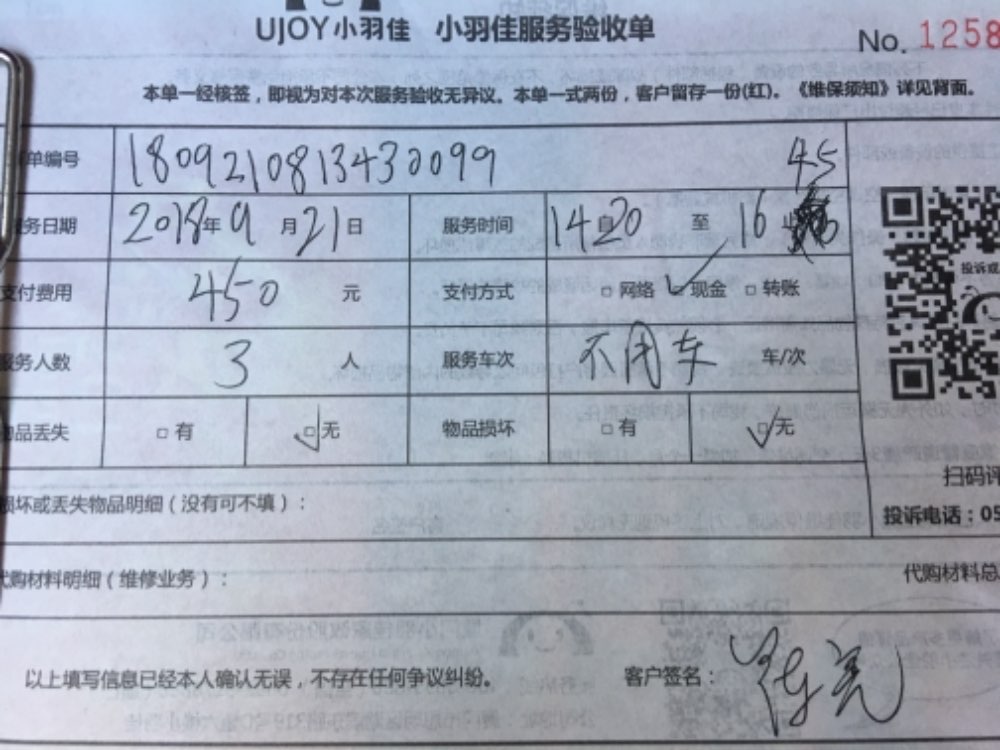 UJOY小羽佳 小羽佳服务验收单
No. 1258
本单一经核签，即视为对本次服务验收无异议。本单一式两份，客户留存一份(红)。《维保须知》详见背面。
单编号 1809210813430099
务日期 2018年9月21日 服务时间 14自20 至 16 45
支付费用 450 元 支付方式 □网络 ✓现金 □转账
服务人数 3 人 服务车次 不用车 车/次
物品丢失 □有 ☑无 物品损坏 □有 ☑无
投诉或
扫码评
损坏或丢失物品明细（没有可不填）：
投诉电话：05
代购材料明细（维修业务）：
代购材料总
以上填写信息已经本人确认无误，不存在任何争议纠纷。 客户签名：